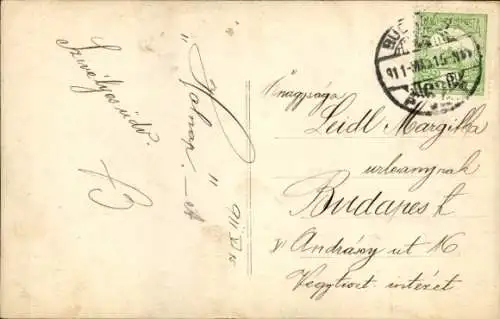 Szívélyes üdv.
B
"Holnap!"
911
Őnagysága
Leidl Margitka
urleánynak
Budapest
V Andrásy ut 16
Vegytiszt. intézet
BUDAPEST
911